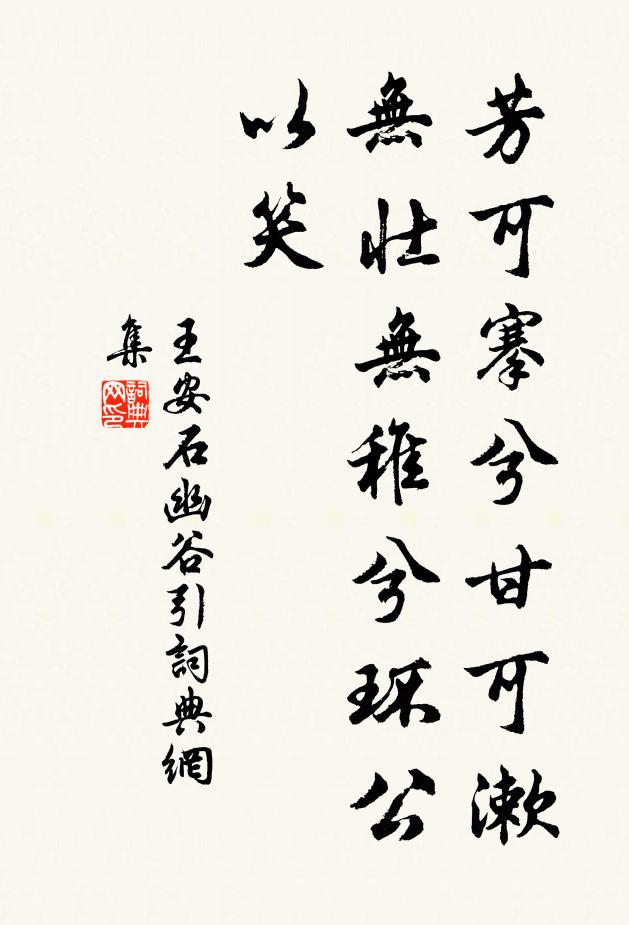 芳可搴兮甘可漱
無壮無稚兮环公
以笑
王安石幽谷引詞典網
集
詞典
网印